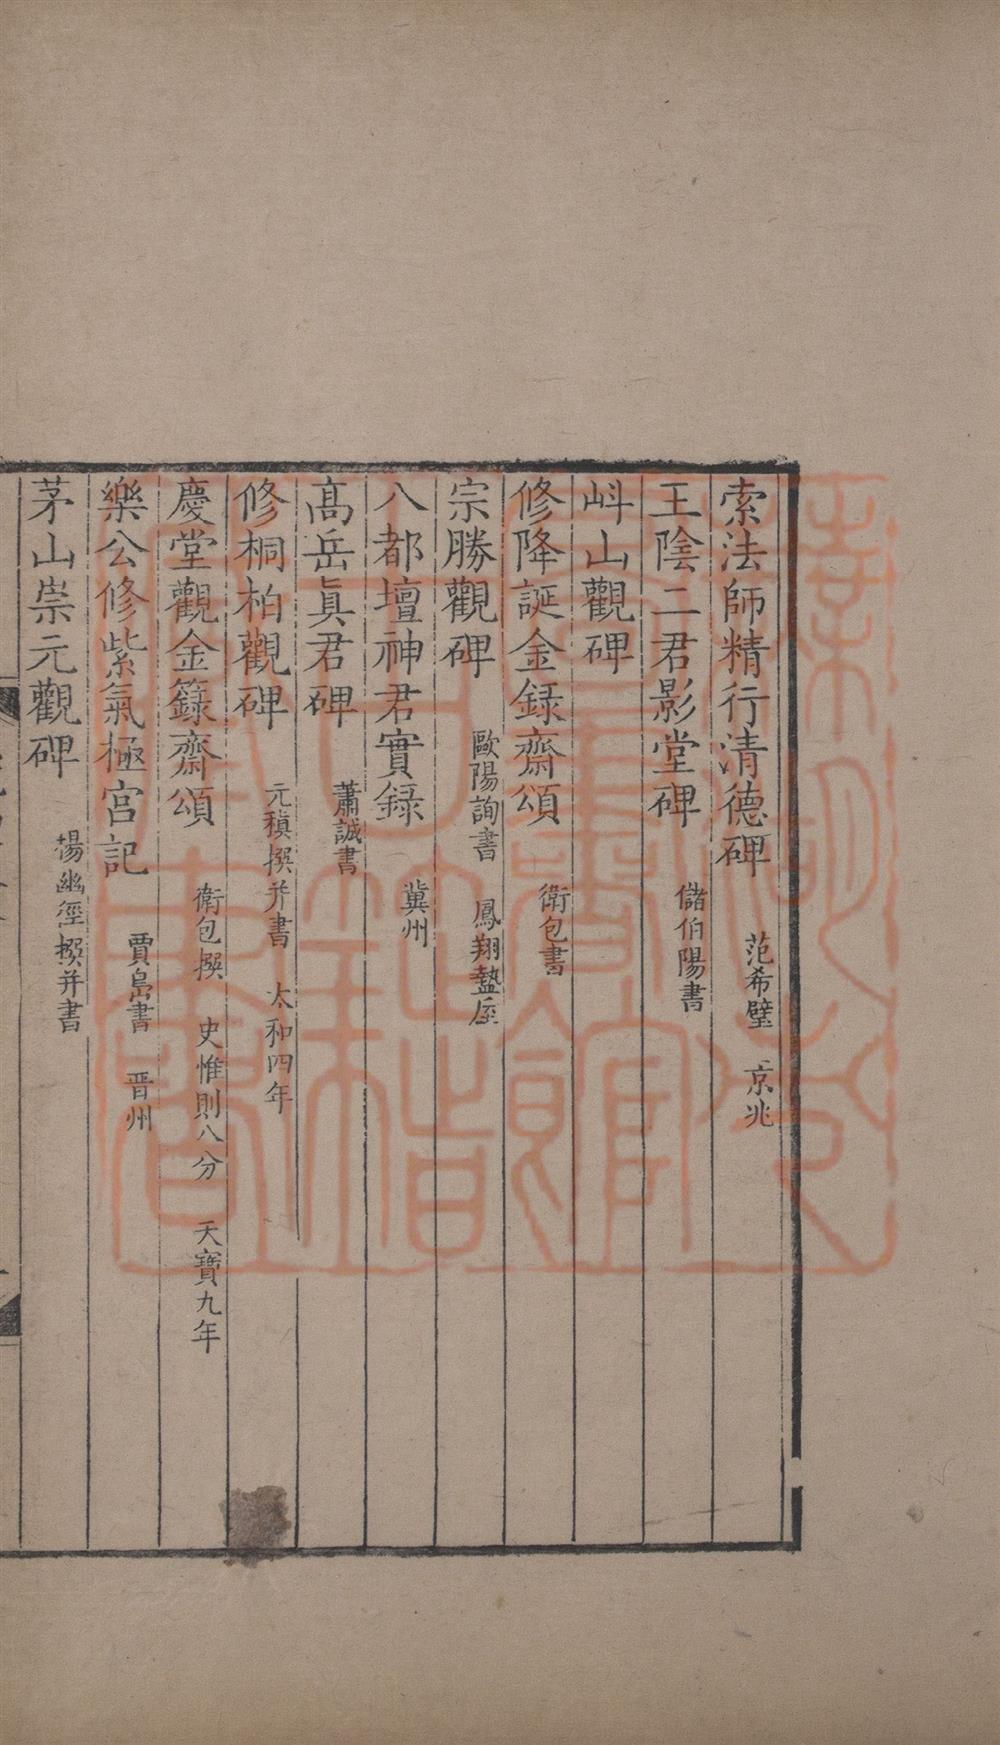 索法師精行清德碑 范希璧 京兆
王陰二君影堂碑 儲伯陽書
㞳山觀碑
修降誕金録齋頌 衛包書
宗勝觀碑 歐陽詢書 鳳翔盩厔
八都壇神君實録 冀州
髙岳眞君碑 蕭誠書
修桐柏觀碑 元稹撰并書 太和四年
慶堂觀金籙齋頌 衛包撰 史惟則八分 天寶九年
樂公修紫氣極宫記 賈島書 晋州
茅山崇元觀碑 楊幽徑撰并書